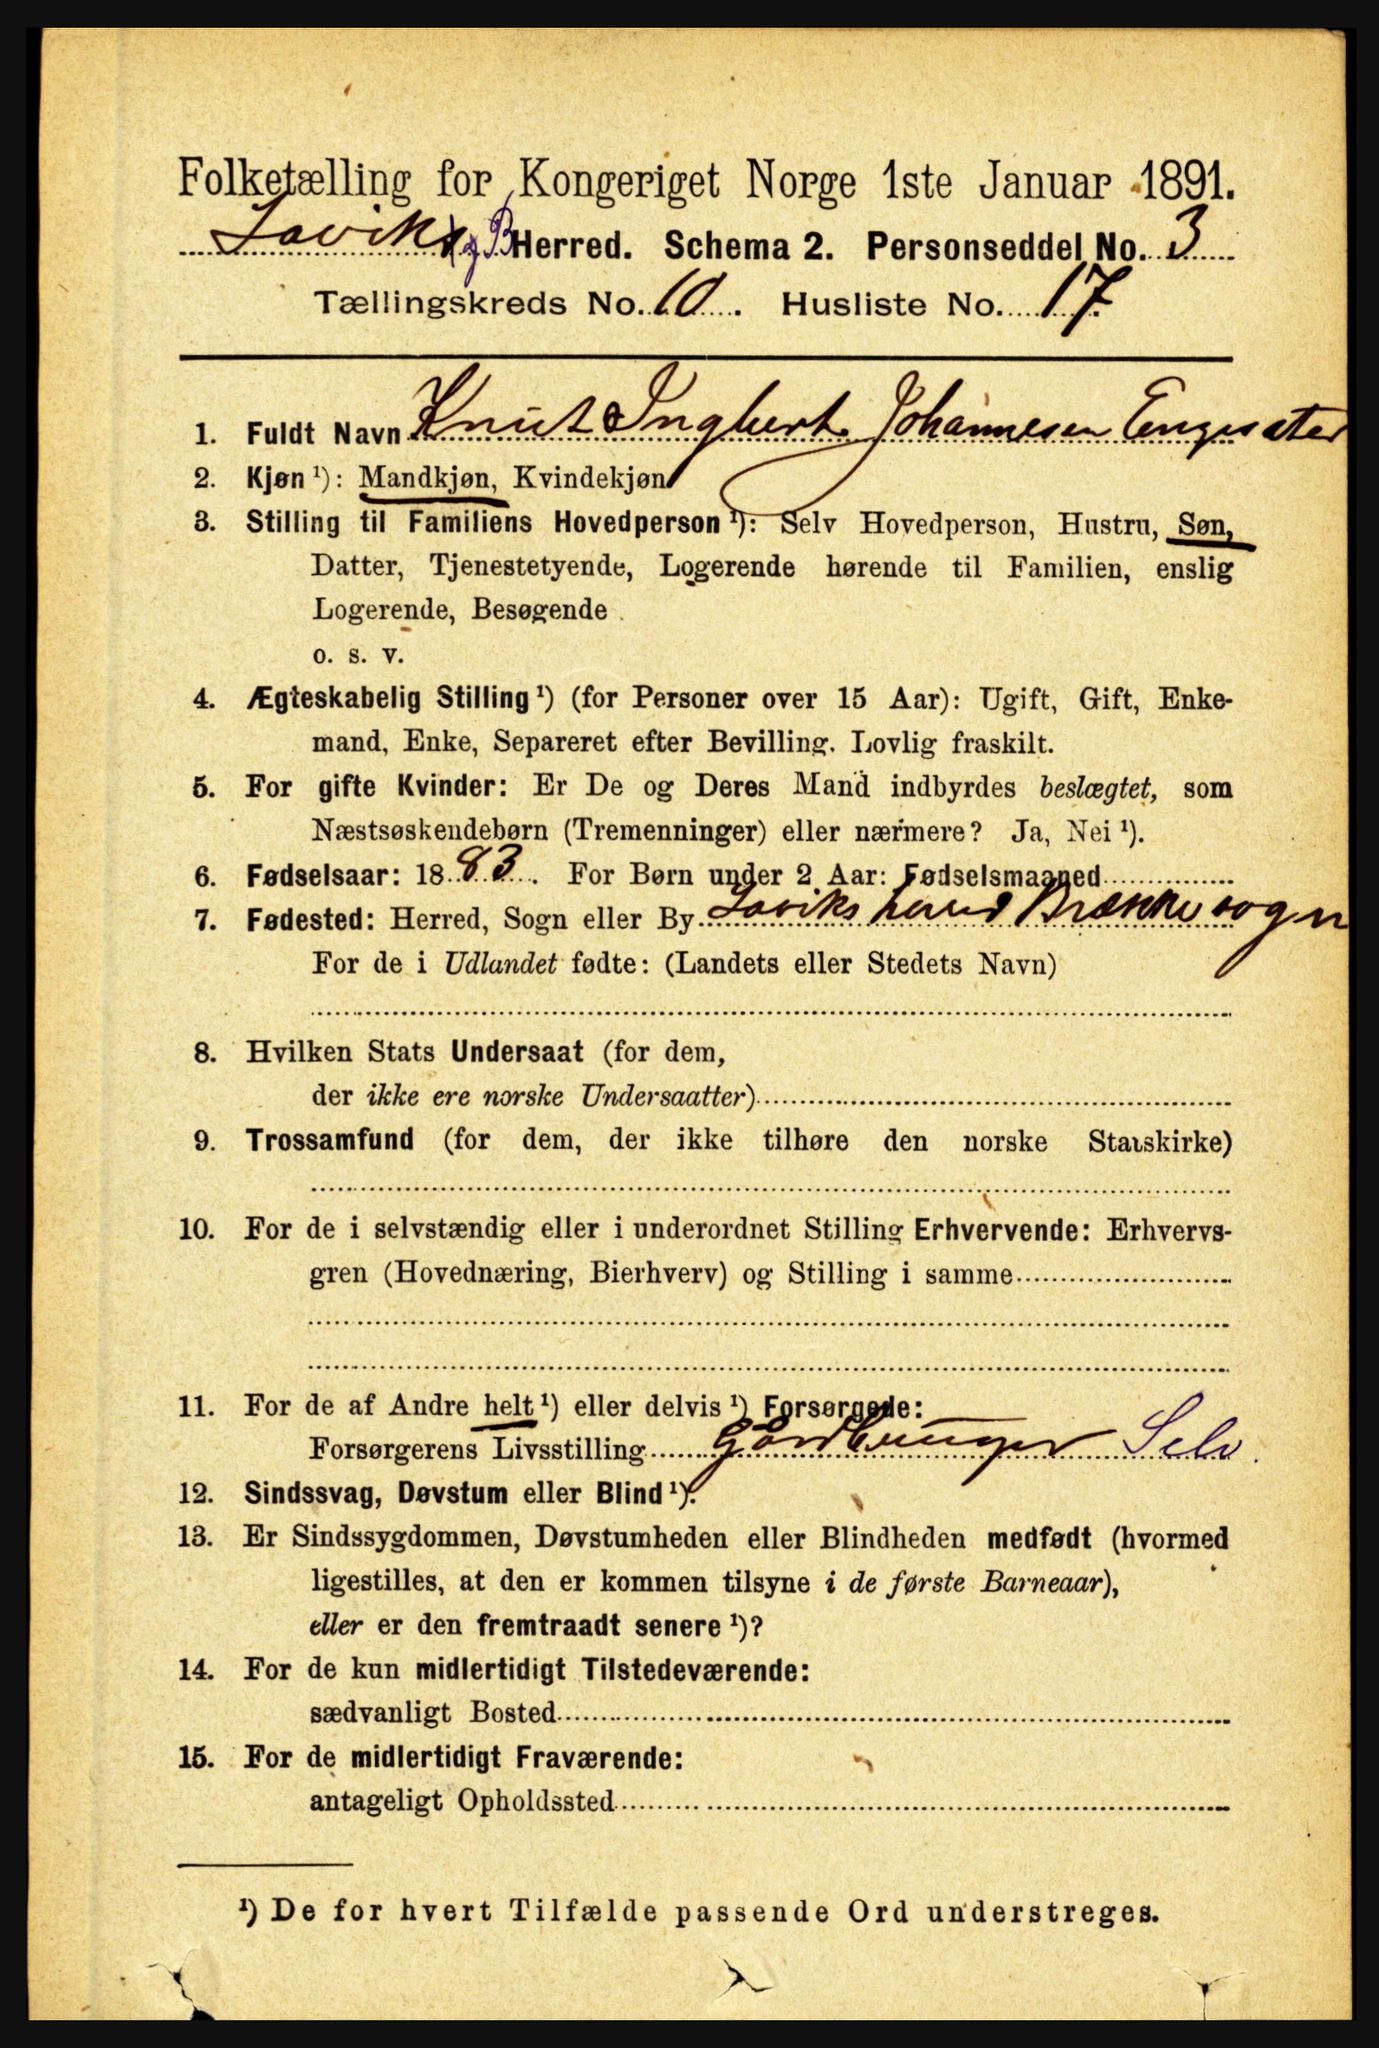 Folketælling for Kongeriget Norge 1ste Januar 1891.
Laviks og B Herred. Schema 2. Personseddel No. 3
Tællingskreds No. 10. Husliste No. 17.
1. Fuldt Navn Knut Ingbert Johannesen Engesæter
2. Kjøn ¹): Mandkjøn, Kvindekjøn
3. Stilling til Familiens Hovedperson ¹): Selv Hovedperson, Hustru, Søn,
Datter, Tjenestetyende, Logerende hørende til Familien, enslig
Logerende, Besøgende
o. s. v.
4. Ægteskabelig Stilling ¹) (for Personer over 15 Aar): Ugift, Gift, Enke-
mand, Enke, Separeret efter Bevilling. Lovlig fraskilt.
5. For gifte Kvinder: Er De og Deres Mand indbyrdes beslægtet, som
Næstsøskendebørn (Tremenninger) eller nærmere? Ja, Nei ¹).
6. Fødselsaar: 1883. For Børn under 2 Aar: Fødselsmaaned
7. Fødested: Herred, Sogn eller By Laviks herred Brække sogn
For de i Udlandet fødte: (Landets eller Stedets Navn)
8. Hvilken Stats Undersaat (for dem,
der ikke ere norske Undersaatter)
9. Trossamfund (for dem, der ikke tilhøre den norske Statskirke)
10. For de i selvstændig eller i underordnet Stilling Erhvervende: Erhvervs-
gren (Hovednæring, Bierhverv) og Stilling i samme
11. For de af Andre helt ¹) eller delvis ¹) Forsørgede:
Forsørgerens Livsstilling Gårdbruger Selv.
12. Sindssvag, Døvstum eller Blind ¹).
13. Er Sindssygdommen, Døvstumheden eller Blindheden medfødt (hvormed
ligestilles, at den er kommen tilsyne i de første Barneaar),
eller er den fremtraadt senere ¹)?
14. For de kun midlertidigt Tilstedeværende:
sædvanligt Bosted
15. For de midlertidigt Fraværende:
antageligt Opholdssted
¹) De for hvert Tilfælde passende Ord understreges.